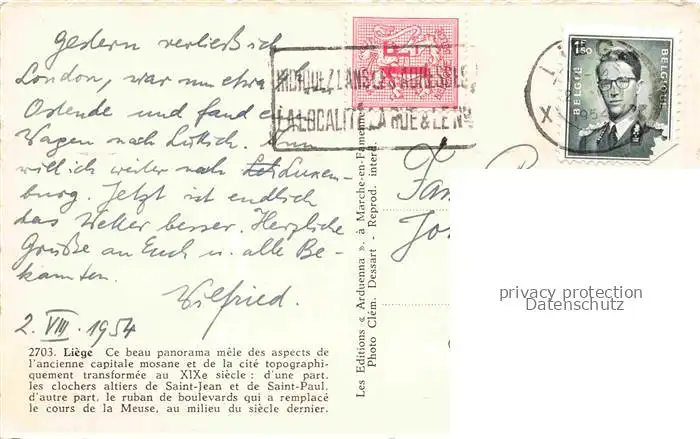 Gestern verließ ich
London, war um etwa
Ostende und fand
Wagen nach Lüttich.
will ich weiter nach Luxem-
burg. Jetzt ist endlich
das Wetter besser. Herzliche
Grüße an Euch u. alle Be-
kannten.
Wilfried.
2. VIII. 1954
2703. Liège Ce beau panorama mêle des aspects de
l'ancienne capitale mosane et de la cité topographi-
quement transformée au XIXe siècle : d'une part,
les clochers altiers de Saint-Jean et de Saint-Paul,
d'autre part, le ruban de boulevards qui a remplacé
le cours de la Meuse, au milieu du siècle dernier.
Les Editions « Arduenna », à Marche-en-Famenne
Photo Clém. Dessart - Reprod. interd.
INDIQUEZ DANS LES ADRESSES
LA LOCALITE LA RUE & LE N°
1F50
BELGIE
BELGIQUE
X
1954
Fam
privacy protection
Datenschutz